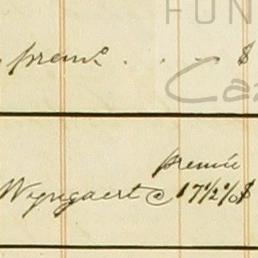 FUN
prem. . . - $
Ca
premie
Wyngaert @ 17½% $